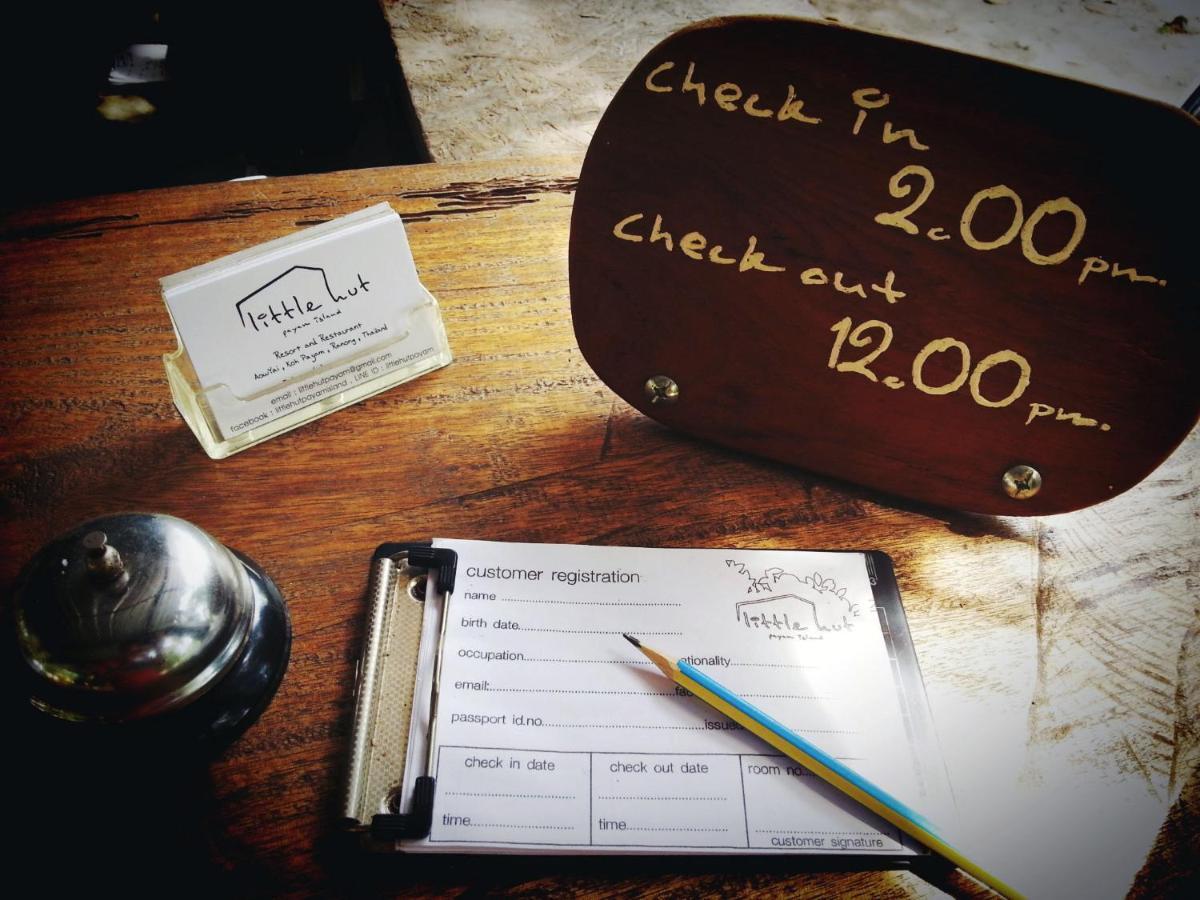 check in
2.00 pm.
check out
12.00 pm.
little hut
payam island
Resort and Restaurant
Aow Yai, Koh Payam, Ranong, Thailand
email : littlehutpayam@gmail.com
facebook : littlehutpayamisland , LINE ID : littlehutpayam
customer registration
little hut
payam island
name
birth date
occupation ationality
email: fac
passport id.no. issue
check in date check out date room no.
time time
customer signature